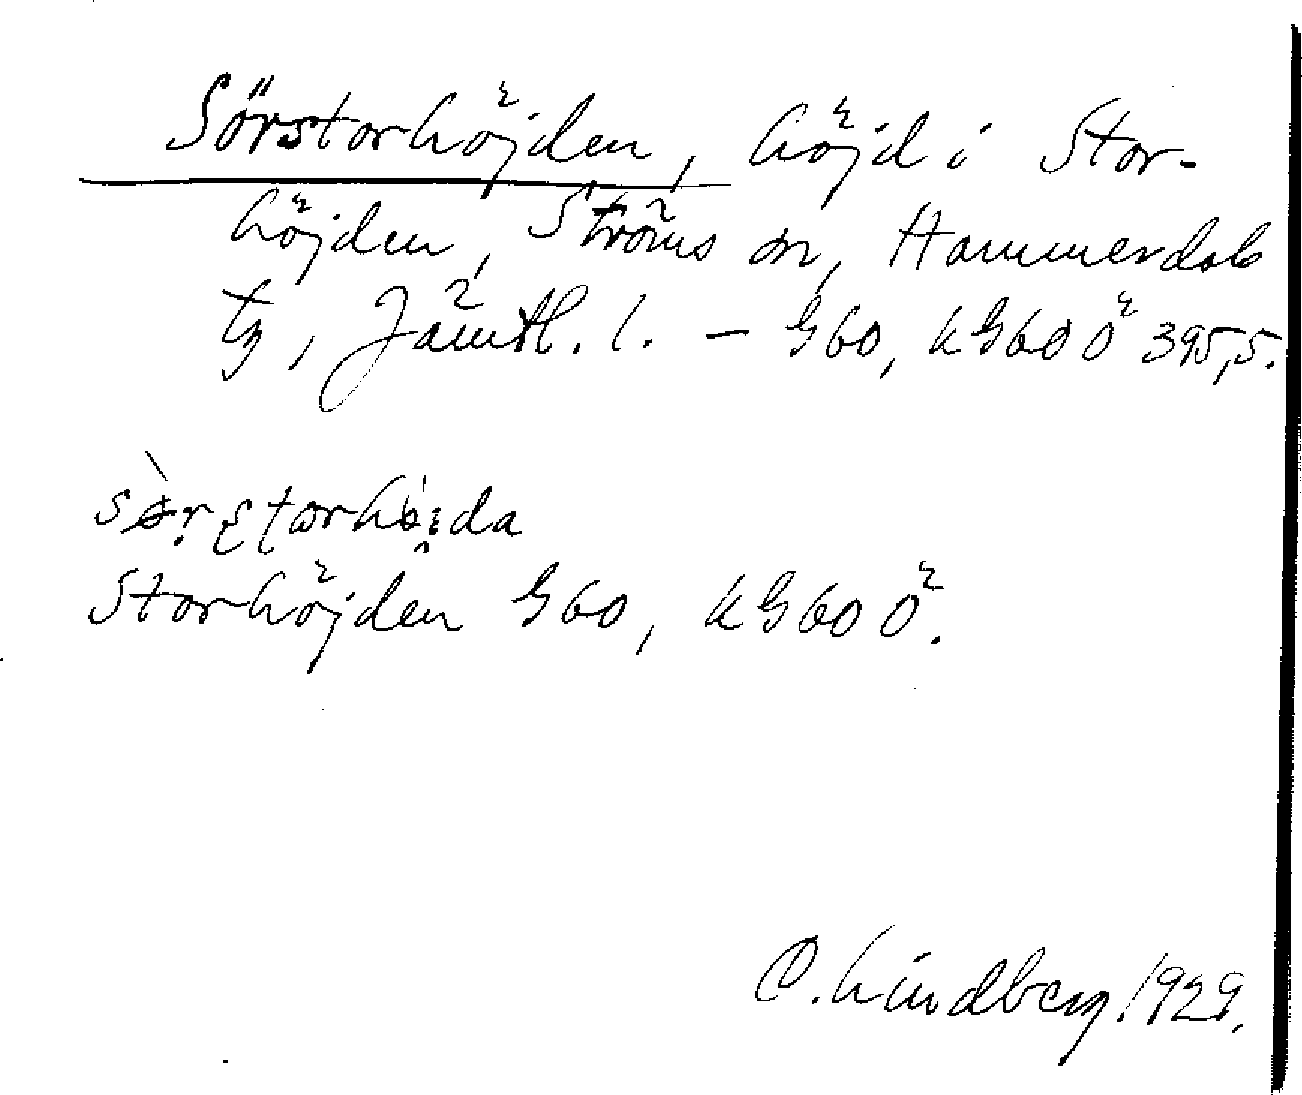 Sörstorhöjden, höjd i Stor-
höjden, Ströms sn, Hammerdals
tg, Jämtl. l. – G60, kG60 Ö 395,5.
Storhöjden G60, kG60 Ö.
O. Lindberg 1929.